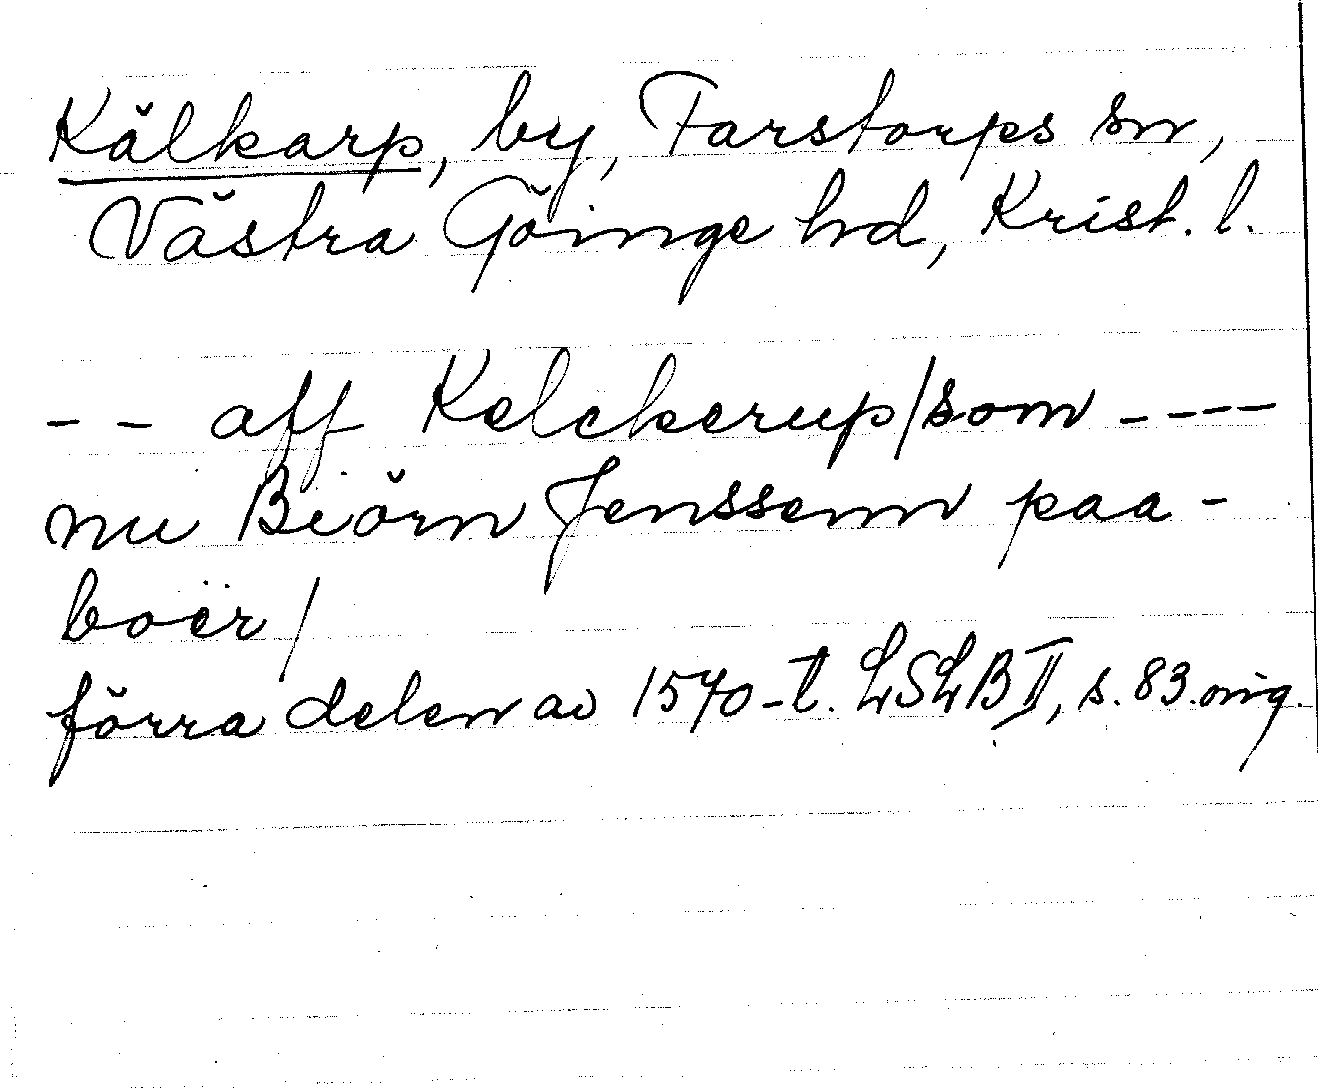 Kälkarp, by, Farstorps sn,
Västra Göinge hd, Krist. l.
-- aff Kelckerup/som ----
nu Biörn Jenssenn paa-
boër/
förra delen av 1570-t. LSLB II, s. 83. orig.